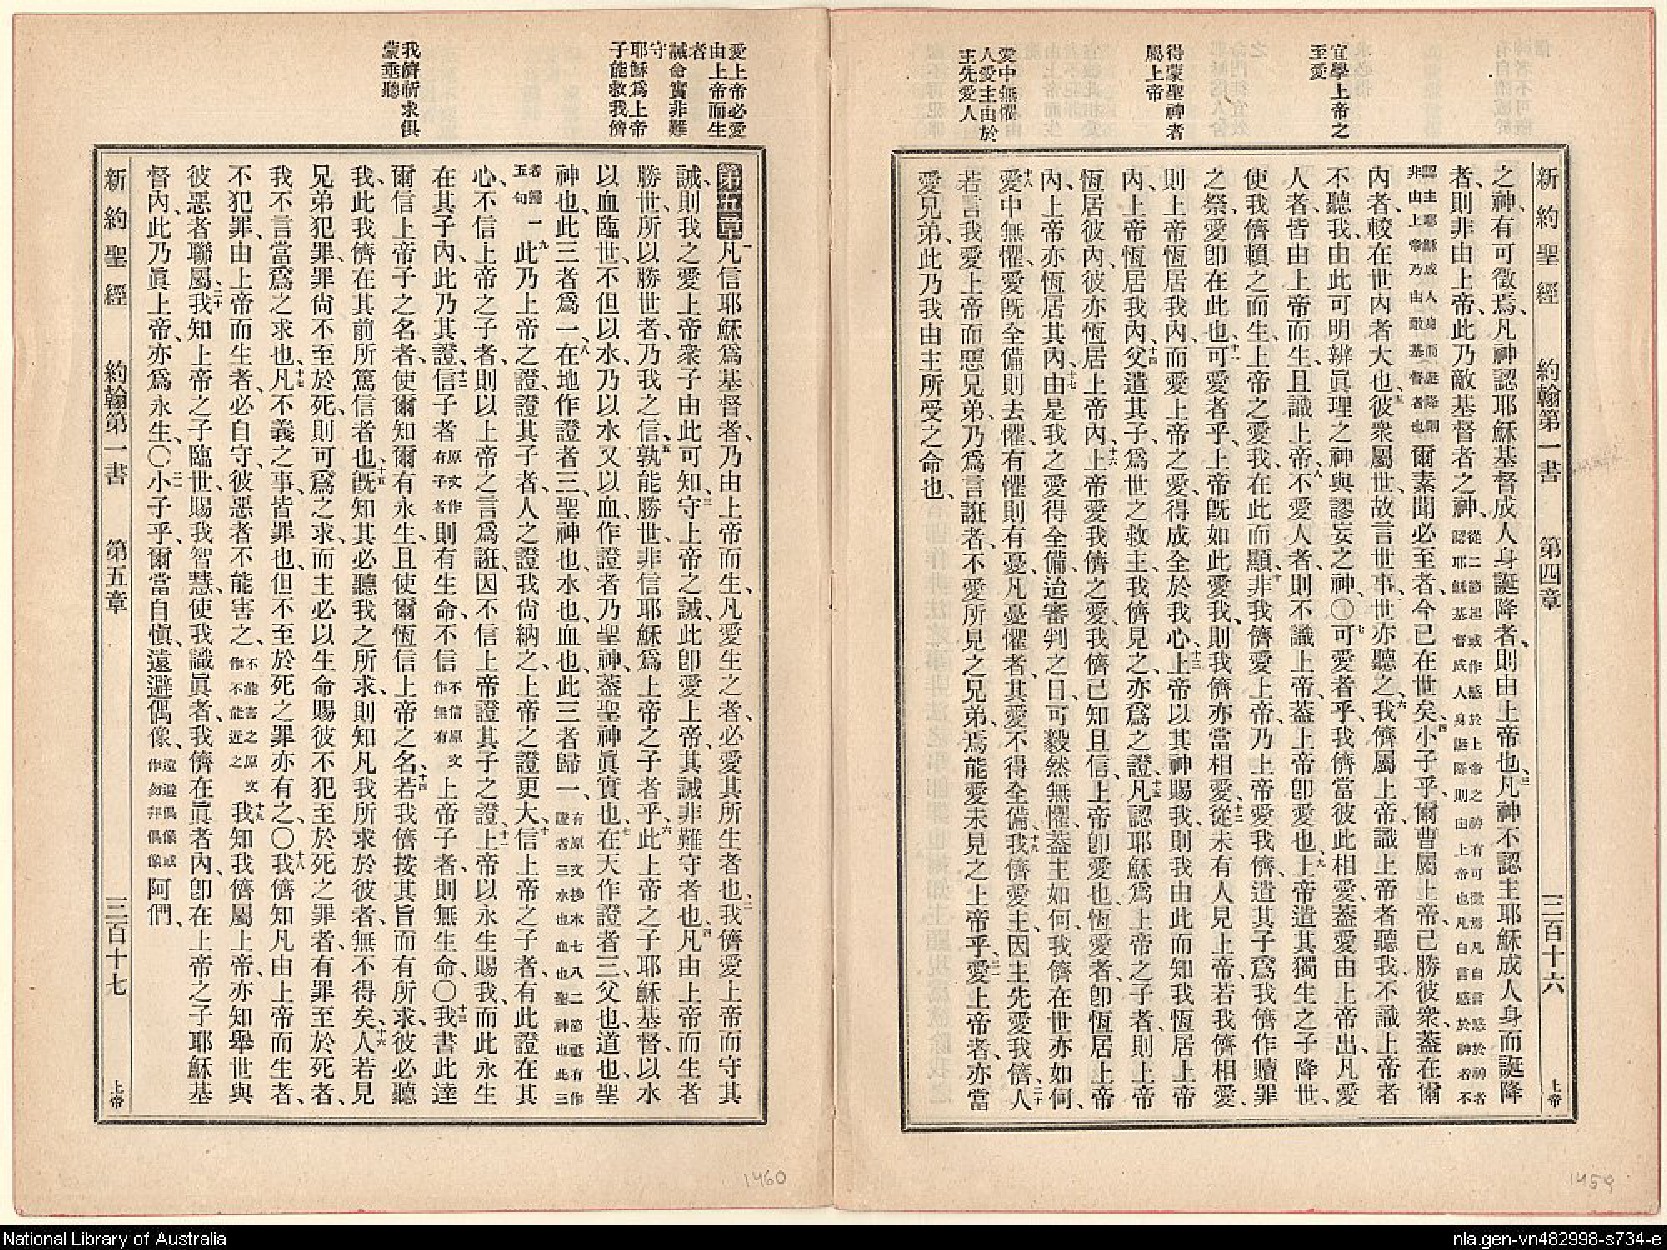 宜學上帝之
至愛
得蒙聖神者
屬上帝
愛中無懼
人愛主由於
主先愛人
新約聖經 約翰第一書 第四章 三百十六 上帝
之神、有可徵焉、凡神認耶穌基督成人身誕降者、則由上帝也、三凡神不認主耶穌成人身而誕降
者、則非由上帝、此乃敵基督者之神、從二節起或作感於上帝之神有可徵焉凡自言感於神者
認耶穌基督成人身誕降則由上帝也凡自言感於神者不
認主耶穌成人身而誕降則
非由上帝乃由敵基督者也爾素聞必至者、今已在世矣、四小子乎、爾曹屬上帝、已勝彼衆、蓋在爾
內者、較在世內者大也、五彼衆屬世、故言世事、世亦聽之、六我儕屬上帝、識上帝者聽我、不識上帝者
不聽我、由此可明辨眞理之神與謬妄之神、〇七可愛者乎、我儕當彼此相愛、蓋愛由上帝出、凡愛
人者、皆由上帝而生、且識上帝、八不愛人者、則不識上帝、蓋上帝卽愛也、九上帝遣其獨生之子降世、
使我儕賴之而生、上帝之愛我、在此而顯、十非我儕愛上帝、乃上帝愛我儕、遣其子爲我儕作贖罪
之祭、愛卽在此也、十一可愛者乎、上帝旣如此愛我、則我儕亦當相愛、十二從未有人見上帝、若我儕相愛、
則上帝恆居我內、而愛上帝之愛、得成全於我心、十三上帝以其神賜我、則我由此而知我恆居上帝
內、上帝恆居我內、十四父遣其子、爲世之救主、我儕見之、亦爲之證、十五凡認耶穌爲上帝之子者、則上帝
恆居彼內、彼亦恆居上帝內、十六上帝愛我儕之愛、我儕已知且信、上帝卽愛也、恆愛者、卽恆居上帝
內、上帝亦恆居其內、十七由是我之愛得全備、迨審判之日、可毅然無懼、蓋主如何、我儕在世亦如何、
十八愛中無懼、愛旣全備則去懼、有懼則有憂、凡憂懼者、其愛不得全備、十九我儕愛主、因主先愛我儕、二十人
若言我愛上帝、而惡兄弟、乃爲言誑者、不愛所見之兄弟、焉能愛未見之上帝乎、二一愛上帝者、亦當
愛兄弟、此乃我由主所受之命也、
愛上帝必愛
由上帝而生
者
誡命實非難
守
耶穌爲上帝
子能救我儕
我儕所求俱
蒙垂聽
第五章一凡信耶穌爲基督者、乃由上帝而生、凡愛生之者、必愛其所生者也、二我儕愛上帝而守其
誡、則我之愛上帝衆子、由此可知、三守上帝之誡、此卽愛上帝、其誡非難守者也、四凡由上帝而生者
勝世、所以勝世者、乃我之信、五孰能勝世、非信耶穌爲上帝之子者乎、六此上帝之子耶穌基督、以水
以血臨世、不但以水、乃以水又以血、作證者乃聖神、蓋聖神眞實也、七在天作證者三、父也、道也、聖
神也、此三者爲一、八在地作證者三、聖神也、水也、血也、此三者歸一、有原文抄本七八二節祗有作
證者三水也血也聖神也此三
者歸一
五句九此乃上帝之證、證其子者、人之證我尚納之、上帝之證更大、十信上帝之子者、有此證在其
心、不信上帝之子者、則以上帝之言爲誑、因不信上帝證其子之證、十一上帝以永生賜我、而此永生
在其子內、此乃其證、十二信子者原文作
有子者則有生命、不信不信原文
作無有上帝子者、則無生命、〇十三我書此達
爾信上帝子之名者、使爾知爾有永生、且使爾恆信上帝之名、十四若我儕按其旨而有所求、彼必聽
我、此我儕在其前所篤信者也、十五旣知其必聽我之所求、則知凡我所求於彼者、無不得矣、十六人若見
兄弟犯罪、罪尚不至於死、則可爲之求、而主必以生命賜彼不犯至於死之罪者、有罪至於死者、
我不言當爲之求也、十七凡不義之事皆罪也、但不至於死之罪亦有之、〇十八我儕知凡由上帝而生者、
不犯罪、由上帝而生者、必自守、彼惡者不能害之、不能害之原文
作不能近之十九我知我儕屬上帝、亦知舉世與
彼惡者聯屬、二十我知上帝之子臨世、賜我智慧、使我識眞者、我儕在眞者內、卽在上帝之子耶穌基
督內、此乃眞上帝、亦爲永生、〇二一小子乎、爾當自愼、遠避偶像、遠避偶像或
作勿拜偶像阿們、
新約聖經 約翰第一書 第五章 三百十七 上帝
1460
1459
National Library of Australia
nla.gen-vn482998-s734-e